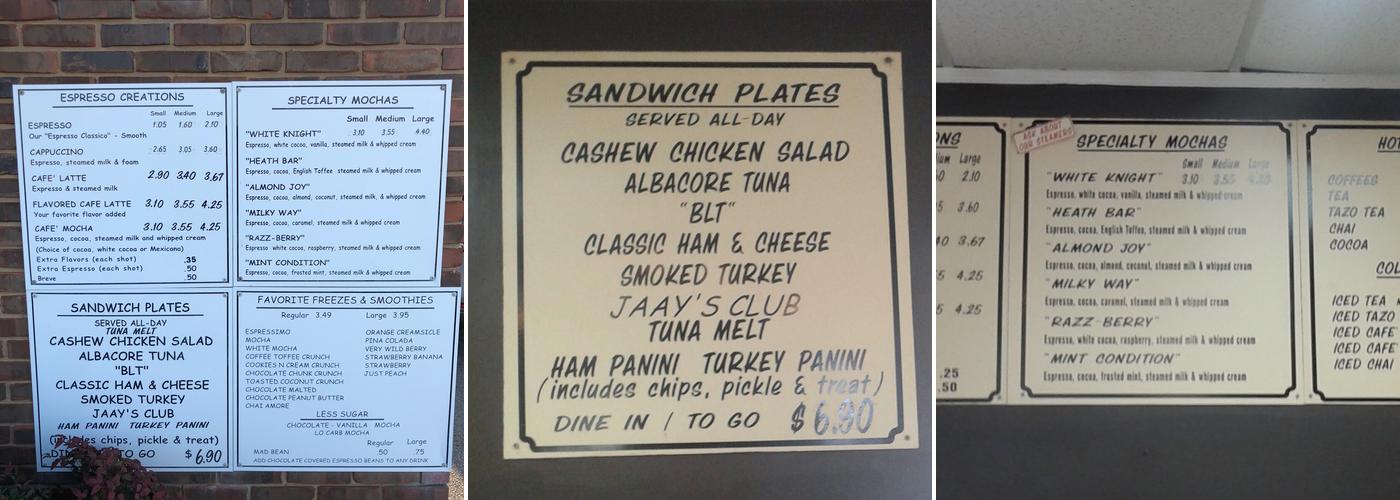 ESPRESSO CREATIONS
Small Medium Large
ESPRESSO 1.05 1.60 2.10
Our "Espresso Classico" - Smooth
CAPPUCCINO 2.65 3.05 3.60
Espresso, steamed milk & foam
CAFE' LATTE 2.90 3.40 3.67
Espresso & steamed milk
FLAVORED CAFE LATTE 3.10 3.55 4.25
Your favorite flavor added
CAFE' MOCHA 3.10 3.55 4.25
Espresso, cocoa, steamed milk and whipped cream
(Choice of cocoa, white cocoa or Mexicano)
Extra Flavors (each shot) .35
Extra Espresso (each shot) .50
Breve .50
SPECIALTY MOCHAS
Small Medium Large
"WHITE KNIGHT" 3.10 3.55 4.40
Espresso, white cocoa, vanilla, steamed milk & whipped cream
"HEATH BAR"
Espresso, cocoa, English Toffee steamed milk & whipped cream
"ALMOND JOY"
Espresso, cocoa, almond, coconut, steamed milk, & whipped cream
"MILKY WAY"
Espresso, cocoa, caramel, steamed milk & whipped cream
"RAZZ-BERRY"
Espresso white cocoa, raspberry, steamed milk & whipped cream
"MINT CONDITION"
Espresso, cocoa, frosted mint, steamed milk & whipped cream
SANDWICH PLATES
SERVED ALL-DAY
TUNA MELT
CASHEW CHICKEN SALAD
ALBACORE TUNA
"BLT"
CLASSIC HAM & CHEESE
SMOKED TURKEY
JAAY'S CLUB
HAM PANINI TURKEY PANINI
chips, pickle & treat)
TO GO $ 6.90
FAVORITE FREEZES & SMOOTHIES
Regular 3.49 Large 3.95
ESPRESSIMO
MOCHA
WHITE MOCHA
COFFEE TOFFEE CRUNCH
COOKIES N CREAM CRUNCH
CHOCOLATE CHUNK CRUNCH
TOASTED COCONUT CRUNCH
CHOCOLATE MALTED
CHOCOLATE PEANUT BUTTER
CHAI AMORE
ORANGE CREAMSICLE
PINA COLADA
VERY WILD BERRY
STRAWBERRY BANANA
STRAWBERRY
JUST PEACH
LESS SUGAR
CHOCOLATE - VANILLA MOCHA
LO CARB MOCHA
Regular Large
MAD BEAN 50 .75
ADD CHOCOLATE COVERED ESPRESSO BEANS TO ANY DRINK
SANDWICH PLATES
SERVED ALL-DAY
CASHEW CHICKEN SALAD
ALBACORE TUNA
"BLT"
CLASSIC HAM & CHEESE
SMOKED TURKEY
JAAY'S CLUB
TUNA MELT
HAM PANINI TURKEY PANINI
(includes chips, pickle & treat)
DINE IN / TO GO $ 6.90
NS
Large
2.10
3.60
3.67
4.25
4.25
.25
.50
ASK ABOUT
OUR STEAMERS
SPECIALTY MOCHAS
Small Medium Large
"WHITE KNIGHT" 3.10 3.55
Espresso, white cocoa, vanilla, steamed milk & whipped cream
"HEATH BAR"
Espresso, cocoa, English Toffee, steamed milk & whipped cream
"ALMOND JOY"
Espresso, cocoa, almond, coconut, steamed milk & whipped cream
"MILKY WAY"
Espresso, cocoa, caramel, steamed milk & whipped cream
"RAZZ-BERRY"
Espresso, white cocoa, raspberry, steamed milk & whipped cream
"MINT CONDITION"
Espresso, cocoa, frosted mint, steamed milk & whipped cream
HOT
COFFEES
TEA
TAZO TEA
CHAI
COCOA
COL
ICED TEA
ICED TAZO
ICED CAFE'
ICED CAFE'
ICED CHAI